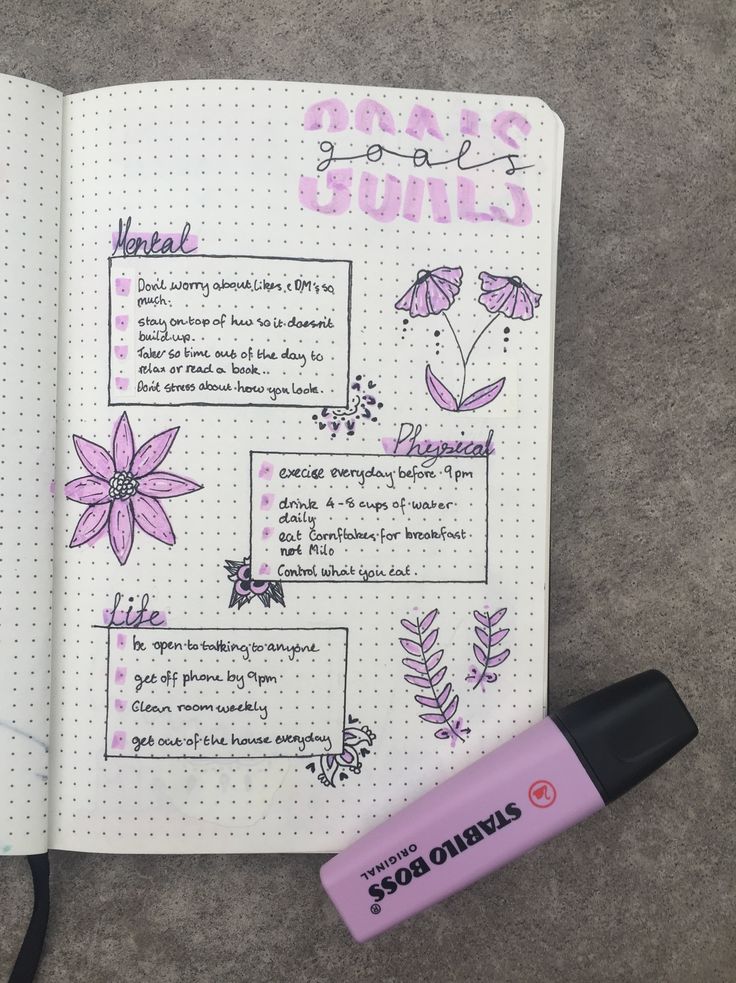 GOALS
goals
Mental
Don't worry about likes, DM's so
much.
stay on top of hw so it doesn't
build up.
Take so time out of the day to
relax or read a book..
Don't stress about how you look.
Physical
execise everyday before 9pm
drink 4-8 cups of water
daily
eat Cornflakes for breakfast
not Milo
Control what you eat.
Life
be open to talking to anyone
get off phone by 9pm
Clean room weekly
get out of the house everyday
STABILO BOSS
ORIGINAL
®